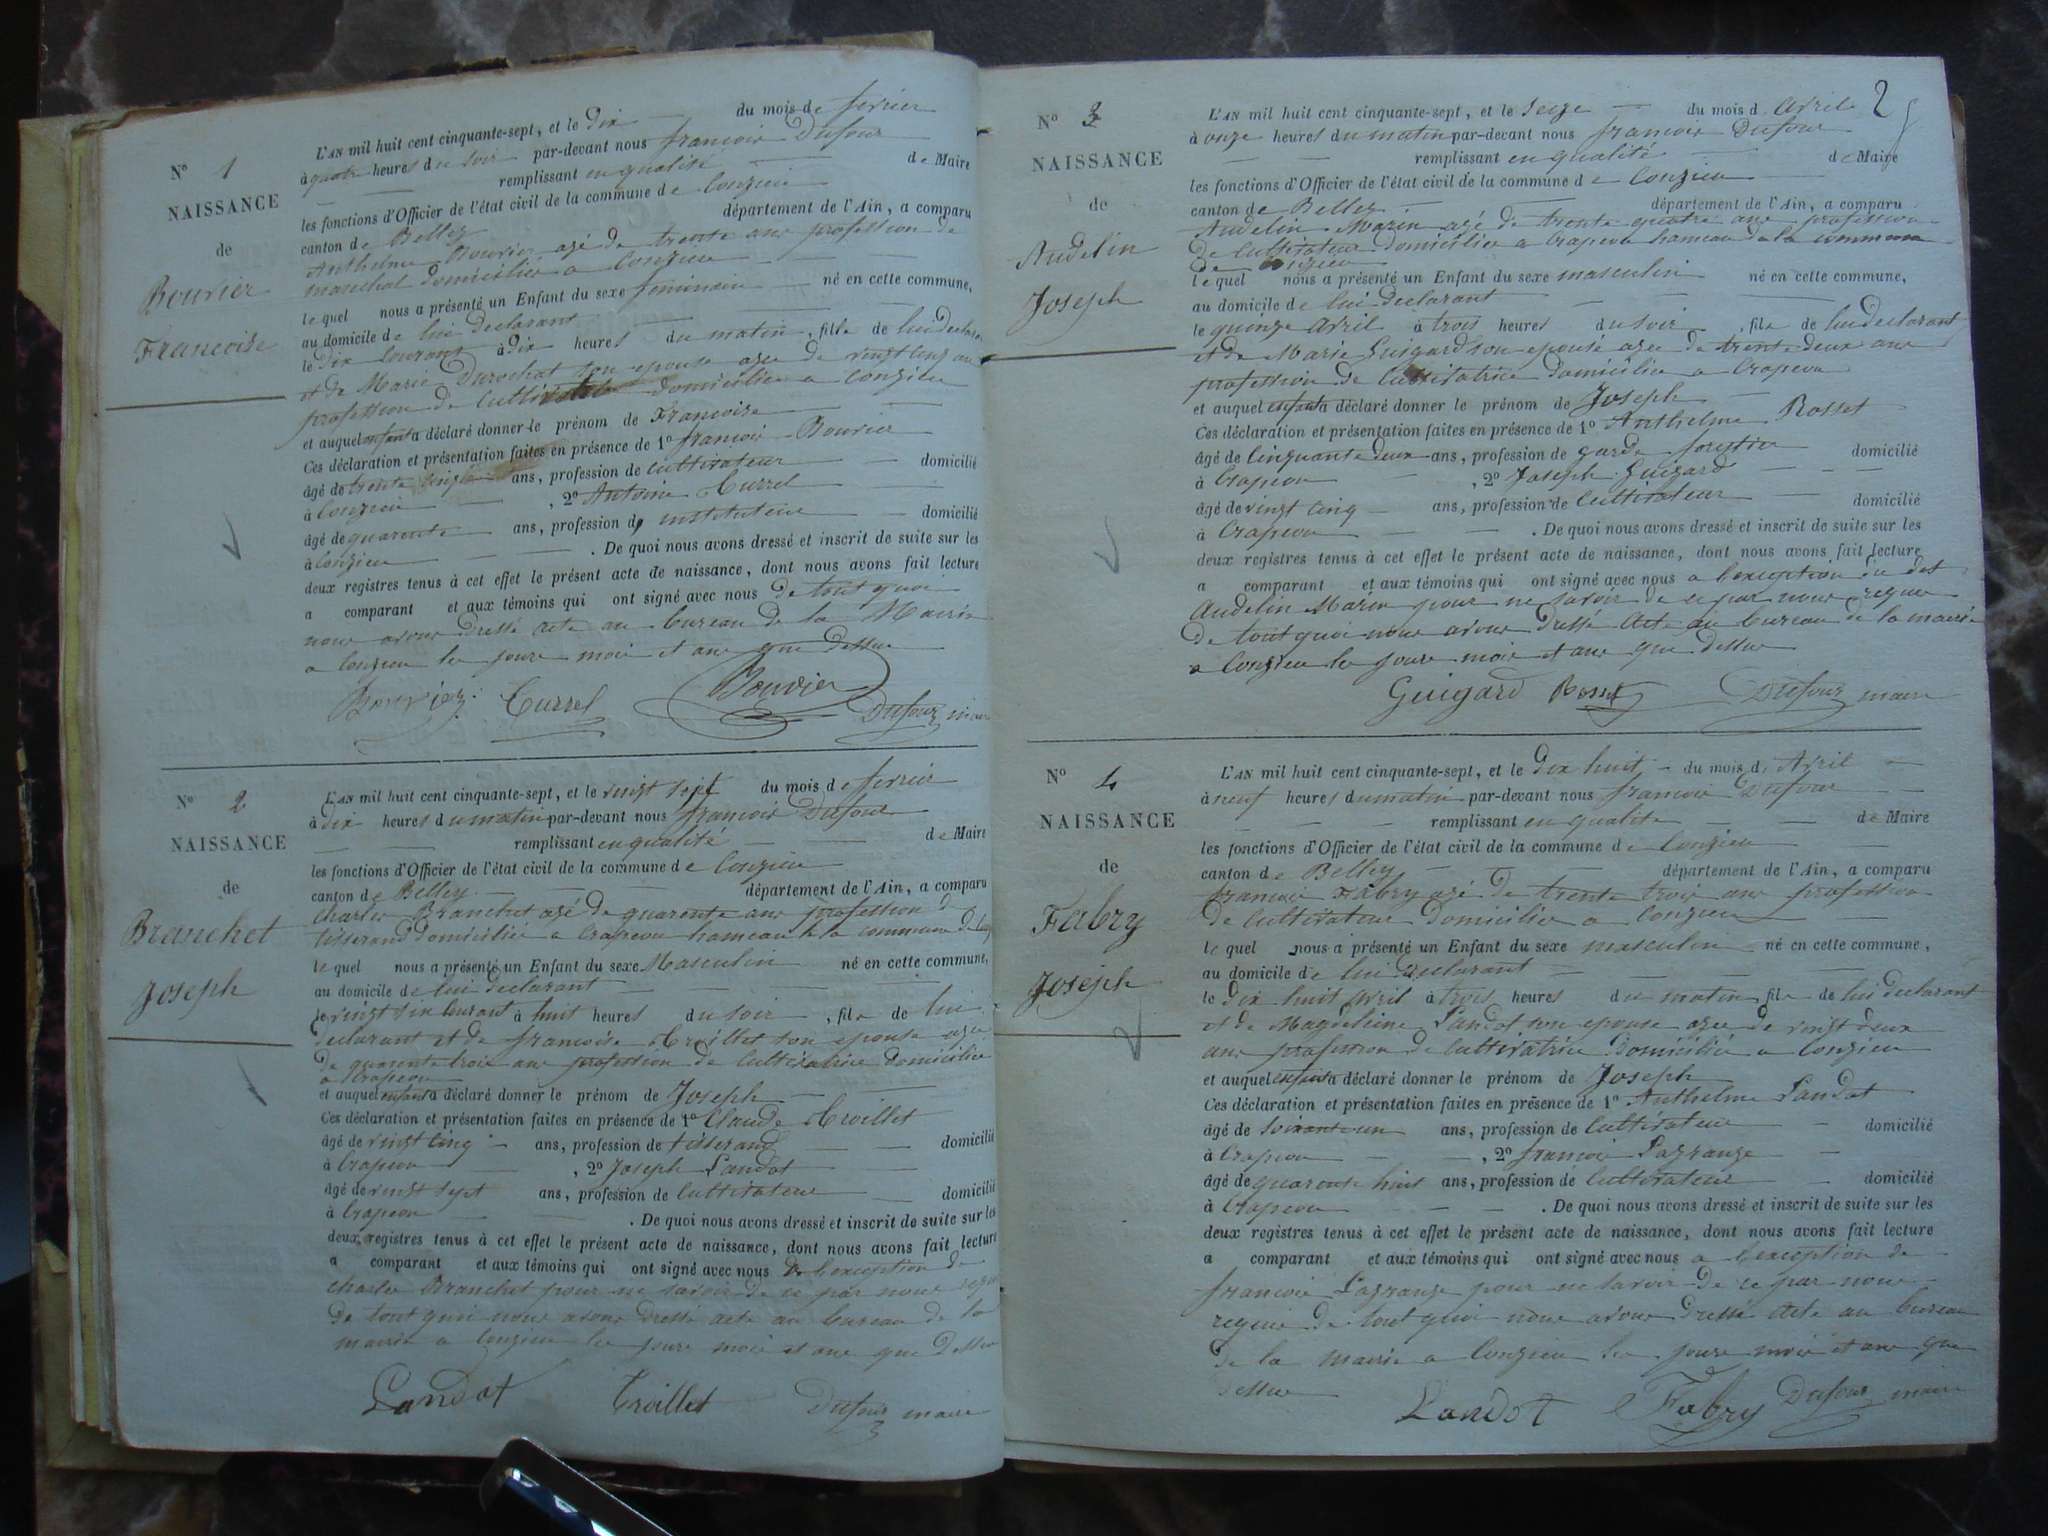 N° 1
NAISSANCE
de
Bouvier
Francoise
L'AN mil huit cent cinquante-sept, et le dix du mois de fevrier
à quatre heures du soir par-devant nous francois Dufour
remplissant en qualité de Maire
les fonctions d'Officier de l'état civil de la commune de Conzieu
canton de Belley département de l'Ain, a comparu
Anthelme Bouvier agé de trente ans profession de
marechal domicilié a Conzieu
le quel nous a présenté un Enfant du sexe feminin né en cette commune,
au domicile de lui declarant
le dix Courant à dix heures du matin, fille de lui declarant
et de Marie Durochat son epouse agee de vingt cinq ans
profession de Cultivatrice domicilié a Conzieu
et auquel enfant a déclaré donner le prénom de Francoise
Ces déclaration et présentation faites en présence de 1° francois Bouvier
âgé de trente cinq ans, profession de Cultivateur domicilié
à Conzieu , 2° Antoine Currel
âgé de quarente ans, profession de instituteur domicilié
à Conzieu . De quoi nous avons dressé et inscrit de suite sur les
deux registres tenus à cet effet le présent acte de naissance, dont nous avons fait lecture
a comparant et aux témoins qui ont signé avec nous de tout quoi
nous avons dressé acte au bureau de la Mairie
a Conzieu les jours mois et ans que dessus
Bouvier Currel Bouvier Dufour maire
N° 2
NAISSANCE
de
Branchet
Joseph
L'AN mil huit cent cinquante-sept, et le vingt sept du mois de fevrier
à dix heures du matin par-devant nous francois Dufour
remplissant en qualité de Maire
les fonctions d'Officier de l'état civil de la commune de Conzieu
canton de Belley département de l'Ain, a comparu
Charles Branchet agé de quarente ans profession de
tisserand domicilié a Crapeou hameau de la commune de
le quel nous a présenté un Enfant du sexe Masculin né en cette commune,
au domicile de lui declarant
le vingt six Courant à huit heures du soir, fils de lui
declarant et de francoise Troillet son epouse agee
de quarente trois ans profession de Cultivatrice domicilié
a Crapeou
et auquel enfant a déclaré donner le prénom de Joseph
Ces déclaration et présentation faites en présence de 1° Claude Troillet
âgé de vingt cinq ans, profession de tisserand domicilié
à Crapeou , 2° Joseph Landot
âgé de vingt sept ans, profession de Cultivateur domicilié
à Crapeou . De quoi nous avons dressé et inscrit de suite sur les
deux registres tenus à cet effet le présent acte de naissance, dont nous avons fait lecture
a comparant et aux témoins qui ont signé avec nous a l'exception de
Charles Branchet pour ne savoir de ce par nous requi
de tout quoi nous avons dressé acte au bureau de la
mairie a Conzieu les jours mois et ans que dessus
Landot Troillet Dufour maire
2
N° 3
NAISSANCE
de
Audelin
Joseph
L'AN mil huit cent cinquante-sept, et le seize du mois d Avril
à onze heures du matin par-devant nous francois Dufour
remplissant en qualité de Maire
les fonctions d'Officier de l'état civil de la commune de Conzieu
canton de Belley département de l'Ain, a comparu
Audelin Marin agé de trente quatre ans profession
de Cultivateur domicilié a Crapeou hameau de la commune
de Conzieu
le quel nous a présenté un Enfant du sexe masculin né en cette commune,
au domicile de lui declarant
le quinze Avril à trois heures du soir, fils de lui declarant
et de Marie Guigard son epouse agee de trente deux ans
profession de Cultivatrice domicilié a Crapeou
et auquel enfant a déclaré donner le prénom de Joseph
Ces déclaration et présentation faites en présence de 1° Anthelme Rosset
âgé de Cinquante deux ans, profession de garde forestier domicilié
à Crapeou , 2° Joseph Guigard
âgé de vingt cinq ans, profession de Cultivateur domicilié
à Crapeou . De quoi nous avons dressé et inscrit de suite sur les
deux registres tenus à cet effet le présent acte de naissance, dont nous avons fait lecture
a comparant et aux témoins qui ont signé avec nous a l'exception du dit
Audelin Marin pour ne savoir de ce par nous requi
de tout quoi nous avons dressé Acte au bureau de la mairie
a Conzieu les jours mois et ans que dessus
Guigard Rosset Dufour maire
N° 4
NAISSANCE
de
Fabry
Joseph
L'AN mil huit cent cinquante-sept, et le dix huit du mois d Avril
à neuf heures du matin par-devant nous francois Dufour
remplissant en qualite de Maire
les fonctions d'Officier de l'état civil de la commune de Conzieu
canton de Belley département de l'Ain, a comparu
francois Fabry agé de trente trois ans profession
de Cultivateur domicilié a Conzieu
le quel nous a présenté un Enfant du sexe masculin né en cette commune,
au domicile de lui declarant
le dix huit Avril à trois heures du matin, fils de lui declarant
et de Magdeleine Landot son epouse agee de vingt deux
ans profession de Cultivatrice domicilié a Conzieu
et auquel enfant a déclaré donner le prénom de Joseph
Ces déclaration et présentation faites en présence de 1° Anthelme Landot
âgé de soixante un ans, profession de Cultivateur domicilié
à Crapeou , 2° francois Lagrange
âgé de quarente huit ans, profession de Cultivateur domicilié
à Crapeou . De quoi nous avons dressé et inscrit de suite sur les
deux registres tenus à cet effet le présent acte de naissance, dont nous avons fait lecture
a comparant et aux témoins qui ont signé avec nous a l'exception de
francois Lagrange pour ne savoir de ce par nous
requis de tout quoi nous avons dressé Acte au bureau
de la mairie a Conzieu les jours mois et ans que
dessus
Landot Fabry Dufour maire